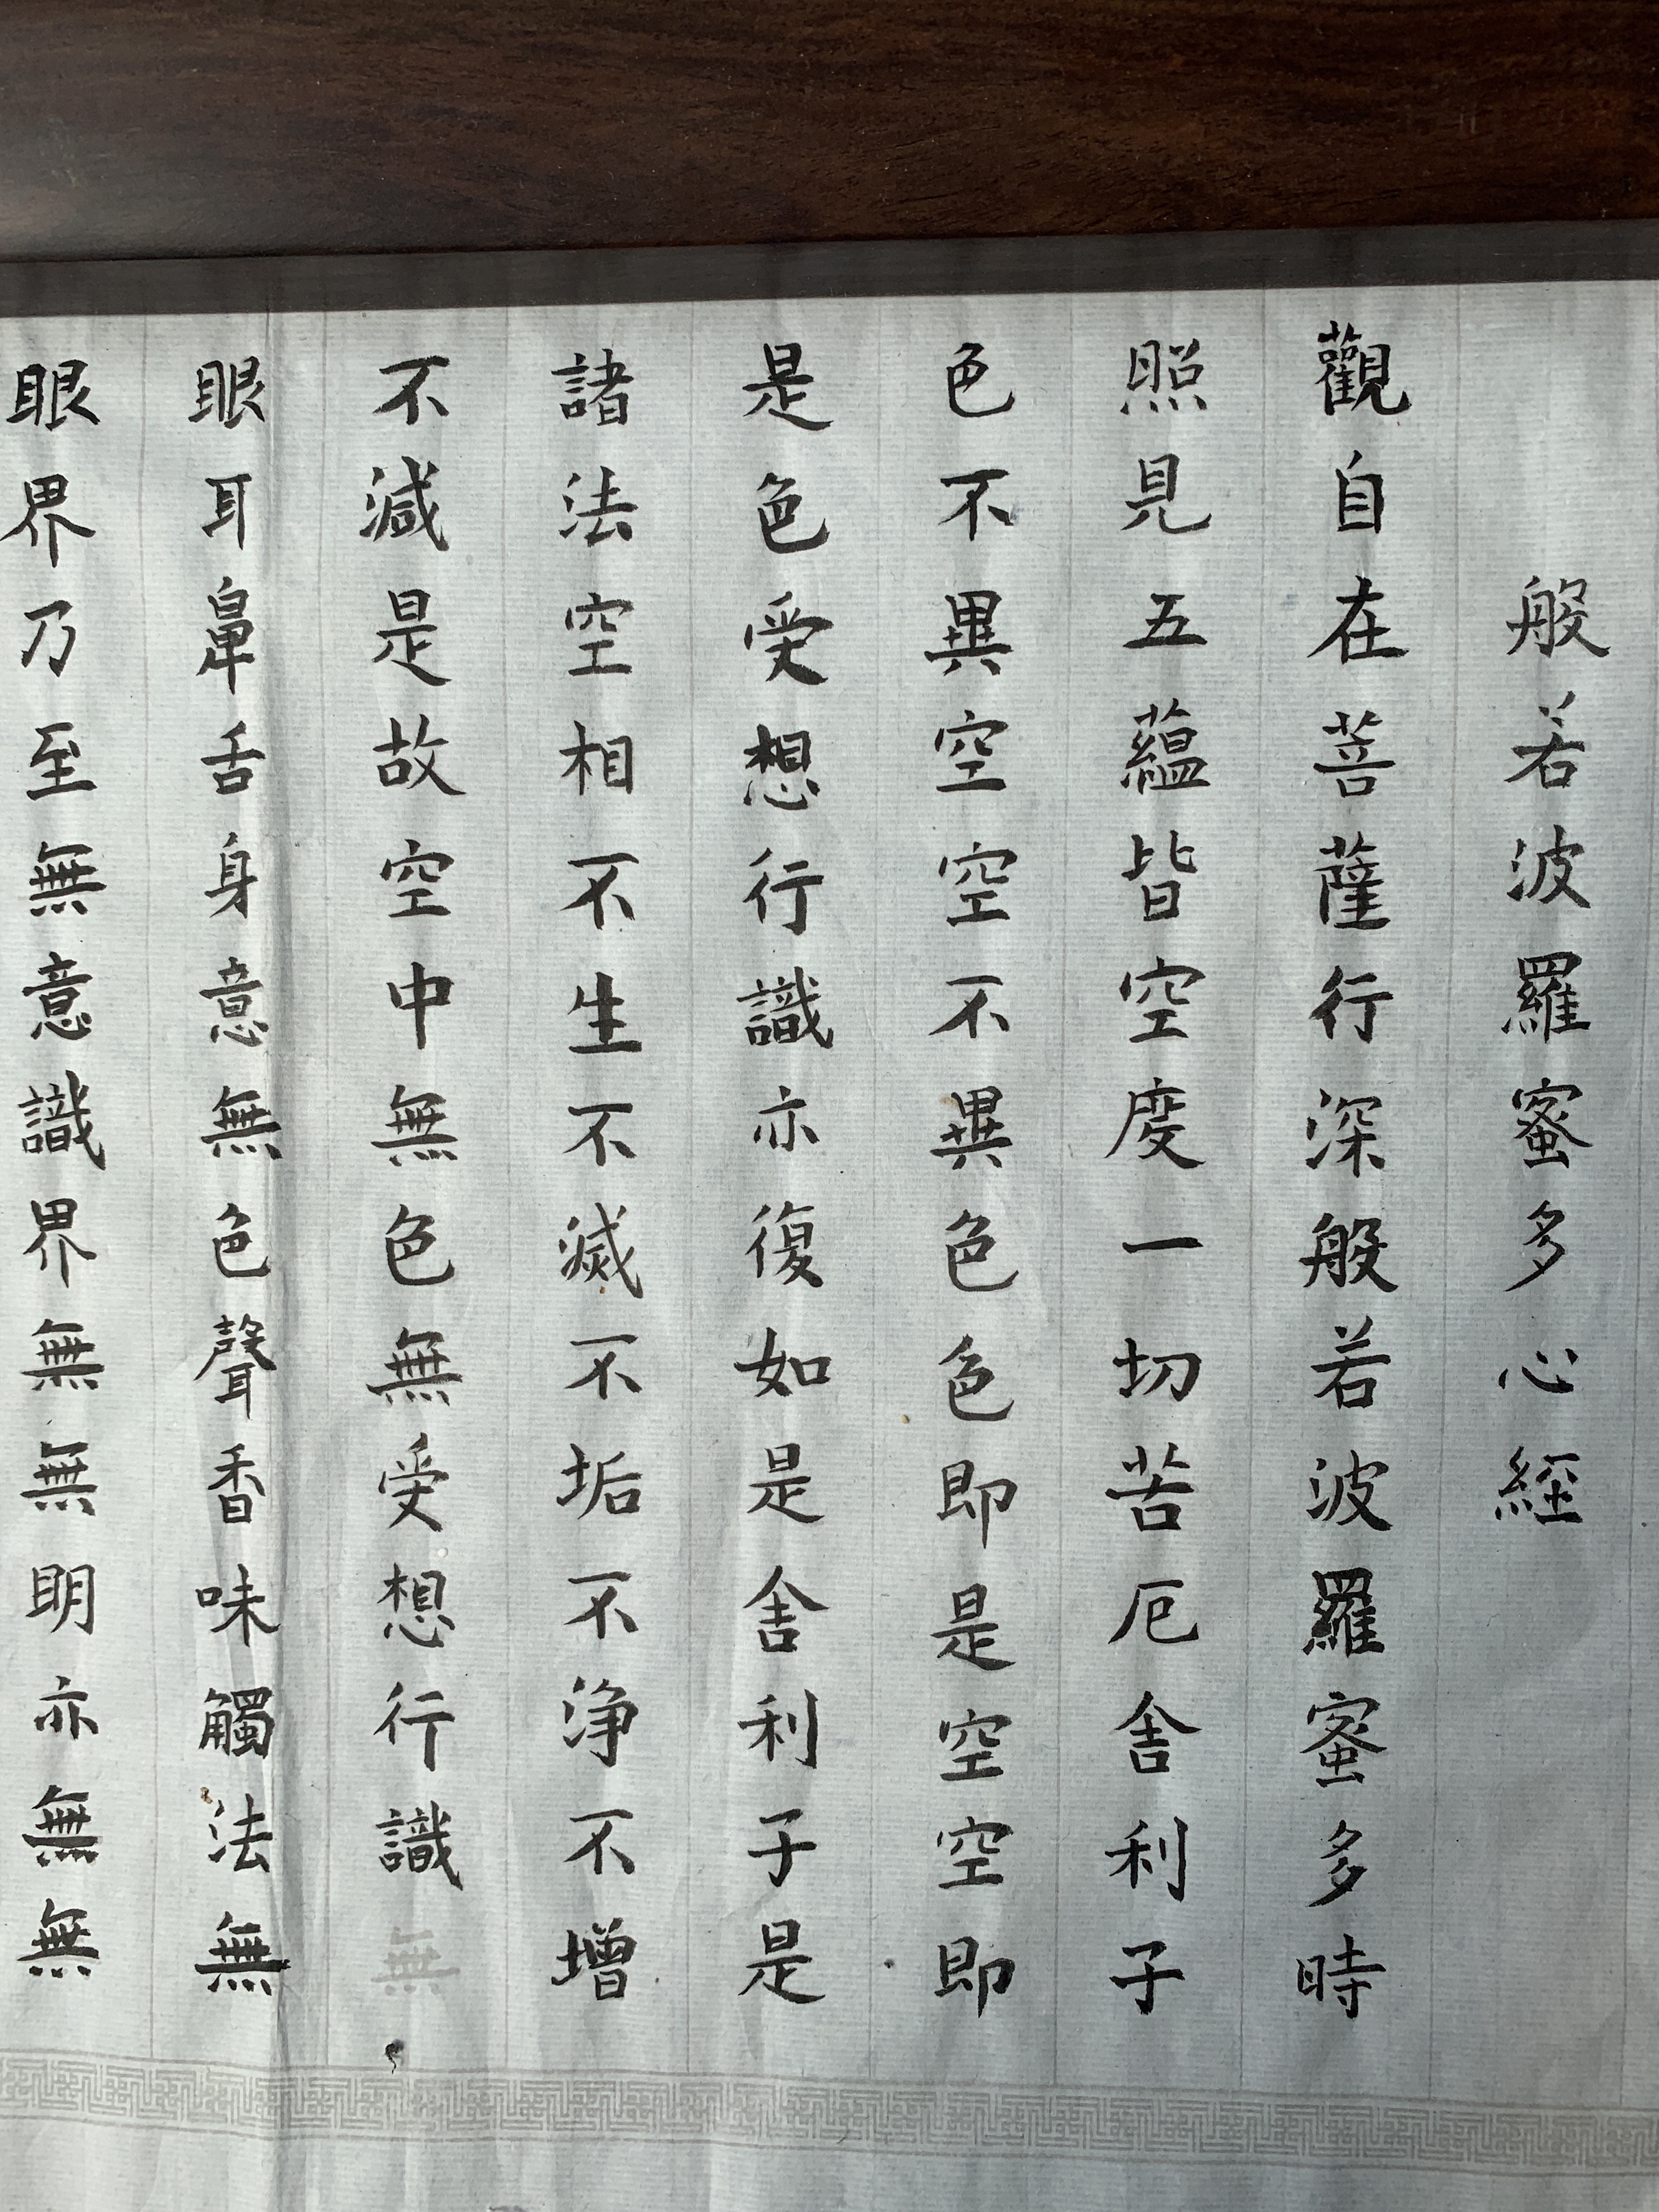 般若波羅蜜多心經
觀自在菩薩行深般若波羅蜜多時
照見五蘊皆空度一切苦厄舍利子
色不異空空不異色色即是空空即
是色受想行識亦復如是舍利子是
諸法空相不生不滅不垢不浄不增
不減是故空中無色無受想行識無
眼耳鼻舌身意無色聲香味觸法無
眼界乃至無意識界無無明亦無無